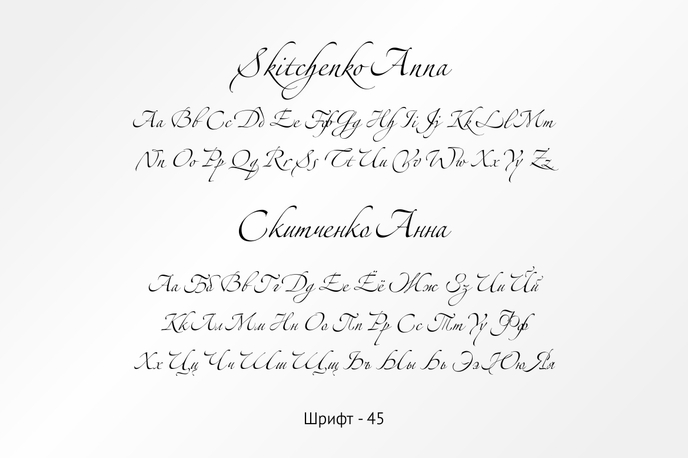 Skitchenko Anna
Aa Bb Cc Dd Ee Ff Gg Hh Ii Jj Kk Ll Mm
Nn Oo Pp Qq Rr Ss Tt Uu Vv Ww Xx Yy Zz
Скитченко Анна
Аа Бб Вв Гг Дд Ее Ёё Жж Зз Ии Йй
Кк Лл Мм Нн Оо Пп Рр Сс Тт Уу Фф
Хх Цц Чч Шш Щщ Ъъ Ыы Ьь Ээ Юю Яя
Шрифт - 45